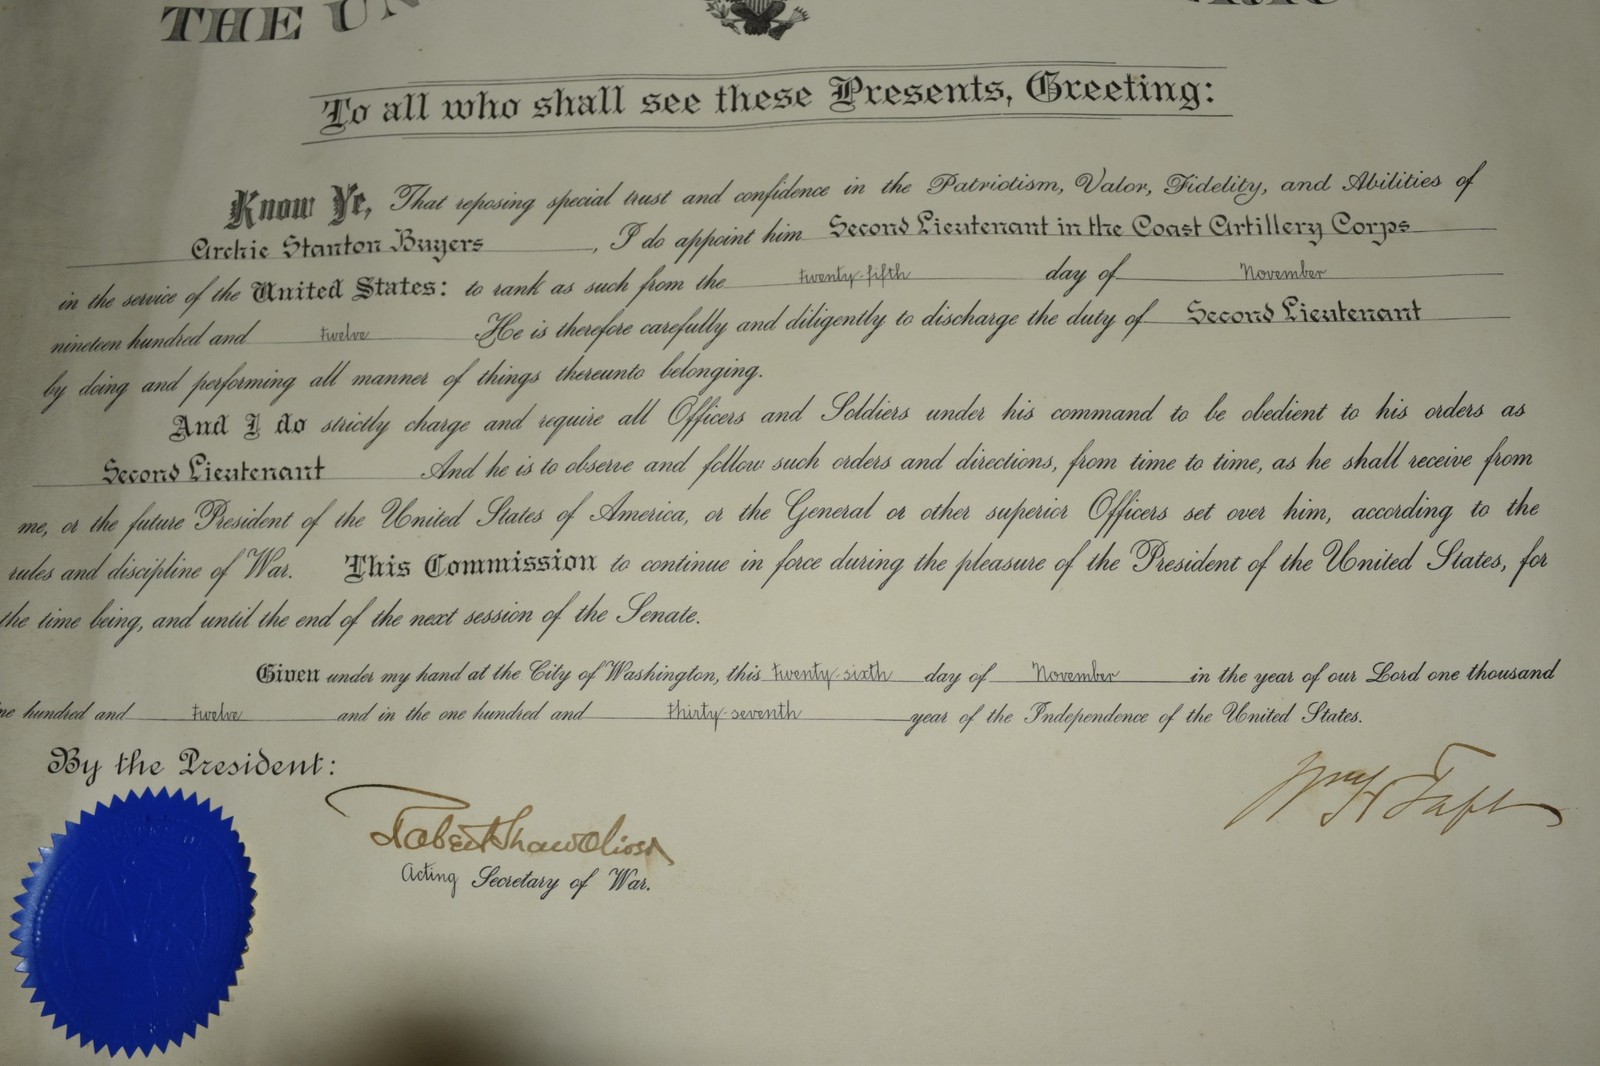 THE UN
To all who shall see these Presents, Greeting:
Know Ye, That reposing special trust and confidence in the Patriotism, Valor, Fidelity, and Abilities of
Archie Stanton Buyers, I do appoint him Second Lieutenant in the Coast Artillery Corps
in the service of the United States: to rank as such from the twenty-fifth day of November
nineteen hundred and twelve He is therefore carefully and diligently to discharge the duty of Second Lieutenant
by doing and performing all manner of things thereunto belonging.
And I do strictly charge and require all Officers and Soldiers under his command to be obedient to his orders as
Second Lieutenant And he is to observe and follow such orders and directions, from time to time, as he shall receive from
me, or the future President of the United States of America, or the General or other superior Officers set over him, according to the
rules and discipline of War. This Commission to continue in force during the pleasure of the President of the United States, for
the time being, and until the end of the next session of the Senate.
Given under my hand at the City of Washington, this twenty-sixth day of November in the year of our Lord one thousand
ne hundred and twelve and in the one hundred and thirty-seventh year of the Independence of the United States.
By the President:
Wm H Taft
Robert Shaw Oliver
Acting Secretary of War.